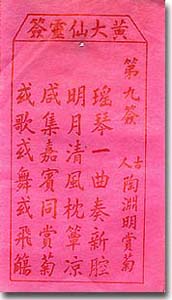 黃大仙靈簽
第九簽
古人 陶淵明賞菊
瑶琴一曲奏新腔
明月清風枕簟涼
咸集嘉賓同賞菊
或歌或舞或飛觴